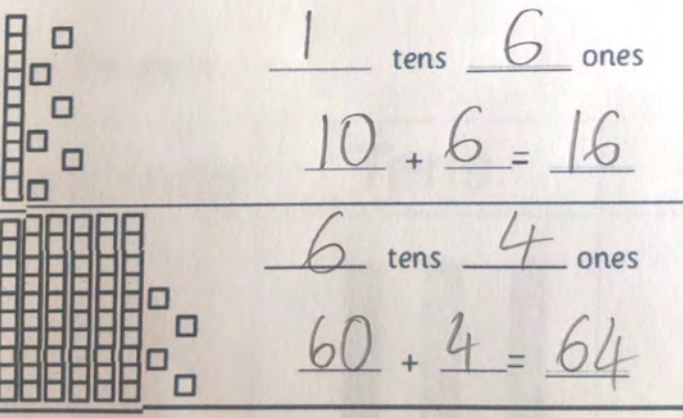 1 tens 6 ones
10 + 6 = 16
6 tens 4 ones
60 + 4 = 64